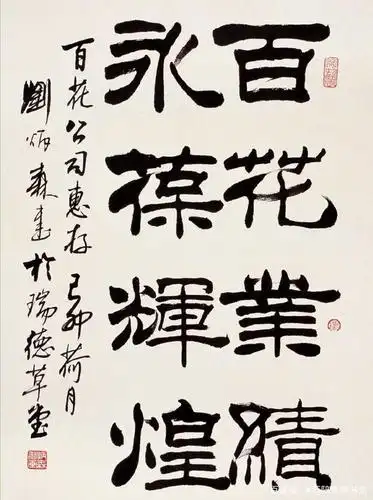 百花業績
永葆輝煌
百花公司惠存 己卯荷月
劉炳森書於瑞德草堂